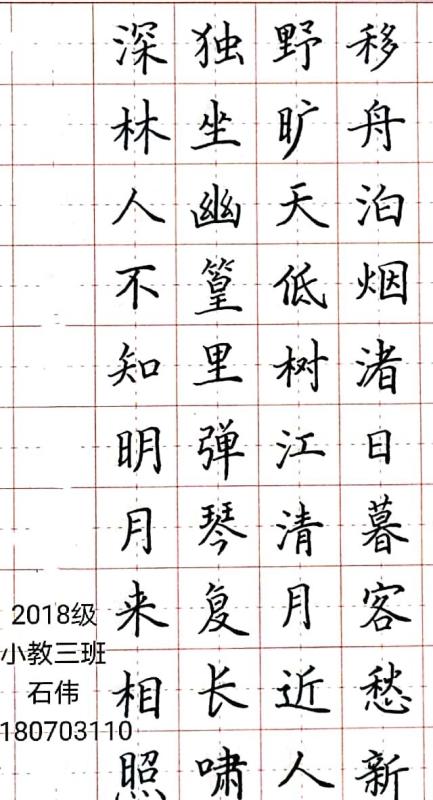 移舟泊烟渚日暮客愁新
野旷天低树江清月近人
独坐幽篁里弹琴复长啸
深林人不知明月来相照
2018级
小教三班
石伟
180703110